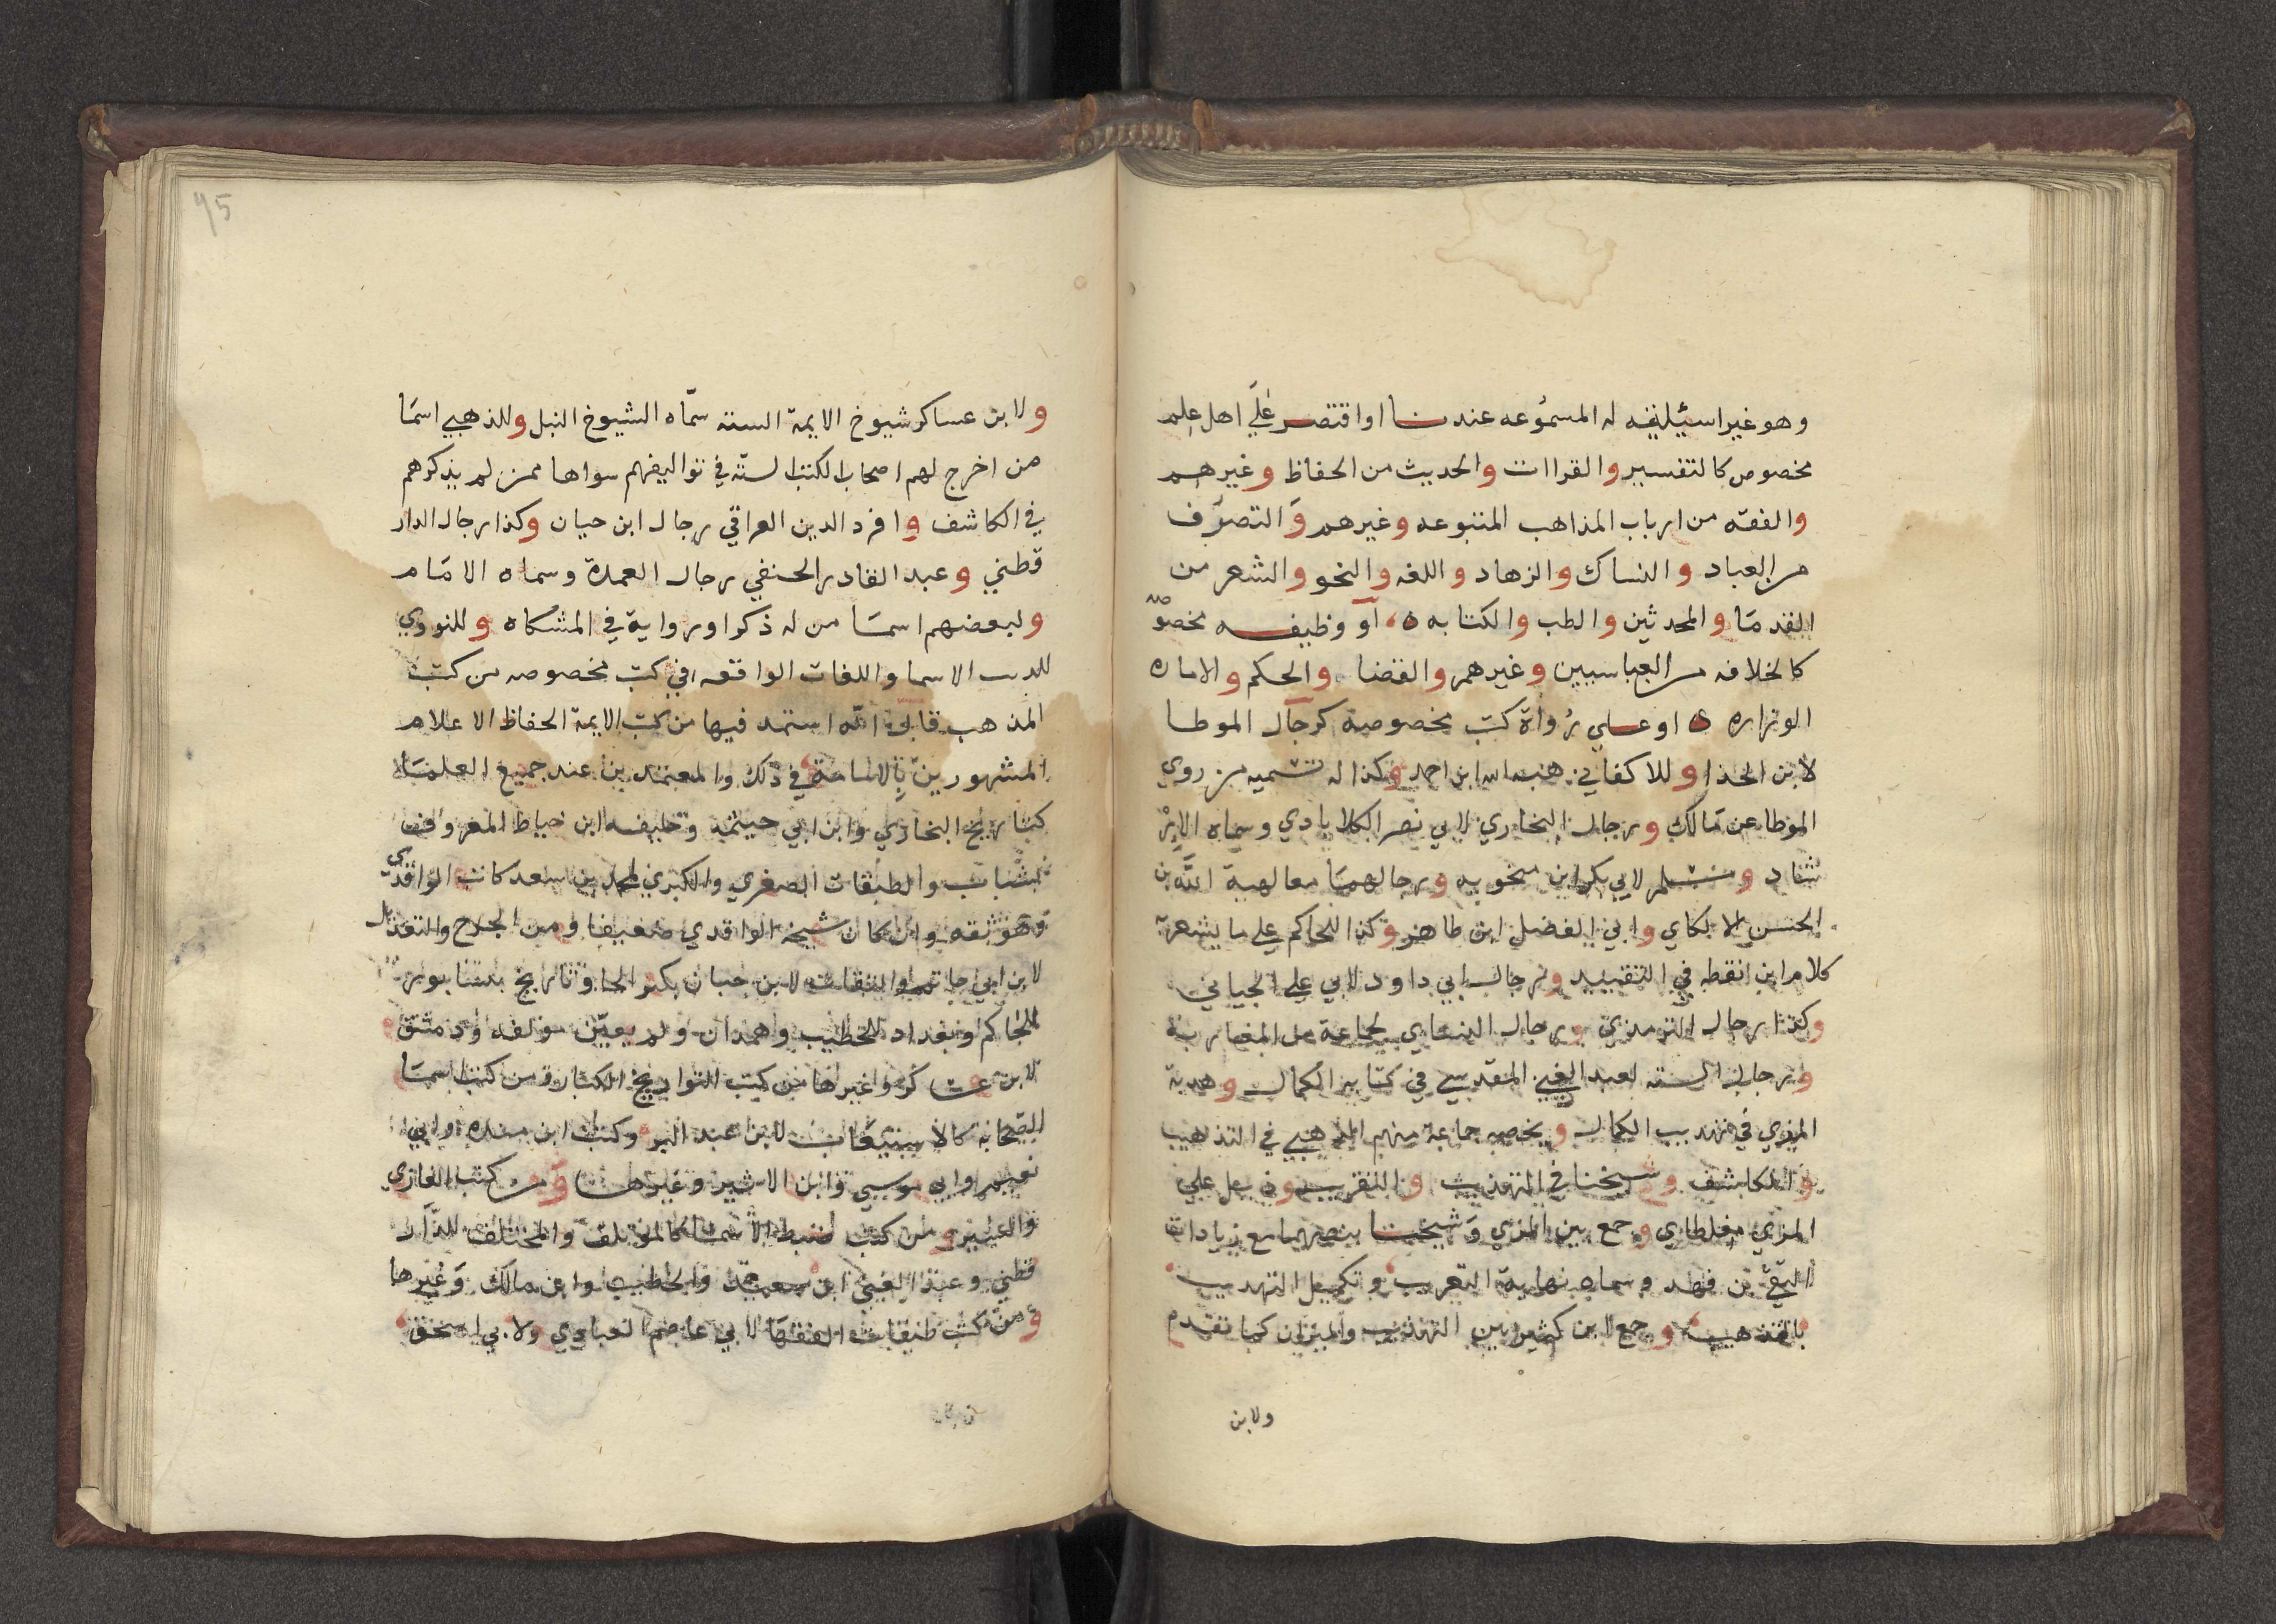 وهو غير اسئلته له المسموعه عندنا او اقتصر علي اهل علم
مخصوص كالتفسير والقراات والحديث من الحفاظ وغيرهم
والفقه من ارباب المذاهب المتبوعه وغيرهم والتصوف
من العباد والنساك والزهاد واللغه والنحو والشعر من
القدما والمحدثين والطب والكتابه ه او وظيفه مخصوصه
كالخلافه من العباسيين وغيرهم والقضا والحكم والاماره
الوزاره ه او علي رواة كتب مخصوصة كرجال الموطا
لابن الحذا وللاكفاني هبه الله ابن احمد وكذا له تسميه من روي
الموطا عن مالك ورجال البخاري لابي نصر الكلاباذي وسماه الار
شاد ومسلم لابي بكر ابن منجويه ورجالهما معا لهبة الله بن
الحسن الالكاي وابي الفضل ابن طاهر وكذا للحاكم علي ما يشعر به
كلام ابن نقطه في التقييد ورجال ابي داود لابي علي الجياني
وكذا رجال الترمذي ورجال النساي لجماعة من المغاربة
ورجال الستة لعبد الغني المقدسي في كتابه الكمال وهذبه
المزي في تهذيب الكمال ولخصه جماعة منهم الذهبي في التذهيب
والكاشف وشيخنا في التهذيب والتقريب وذيل علي
المزي مغلطاي وجمع بين المزي وشيخنا بنصهما مع زيادات
التقي بن فهد وسماه نهاية التقريب وتكميل التهذيب
بالتذهيب وجمع ابن كثير بين التهذيب والميزان كما تقدم
ولابن
95
ولابن عساكر شيوخ الايمة الستة سماه الشيوخ النبل وللذهبي اسما
من اخرج لهم اصحاب الكتب الستة في تواليفهم سواها ممن لم يذكرهم
في الكاشف وافرد الدين العراقي رجال ابن حبان وكذا رجال الدار
قطني وعبد القادر الحنفي رجال العمدة وسماه الامام
ولبعضهم اسما من له ذكر او رواية في المشكاه وللنووي
الاسما واللغات الواقعه في كتب مخصوصه من كتب
المذهب قابل الله استمد فيها من كتب الايمة الحفاظ الاعلام
المشهورين بالامامة في ذلك والمعتمدين عند جميع العلما
كتاريخ البخاري وابن ابي خيثمة وخليفه ابن خياط المعروف
بشباب والطبقات الصغري والكبري لمحمد بن سعد كاتب الواقدي
وهو ثقه وان كان شيخه الواقدي ضعيفا ومن الجرح والتعديل
لابن ابي حاتم والثقات لابن حبان بكسر الحا وتاريخ نيسابور
للحاكم وبغداد للخطيب وهمدان ولم يعين مولفه ودمشق
لابن عساكر وغيرها من كتب التواريخ الكبار ومن كتب اسما
الصحابة كالاستيعاب لابن عبد البر وكتاب ابن منده وابي
نعيم وابي موسي وابن الاثير وغيرها ومن كتب المغازي
والسير ومن كتب ضبط الاسما كالموتلف والمختلف للدار
قطني وعبد الغني ابن سعيد والخطيب وابن ماكلا وغيرها
ومن كتب طبقات الفقها لابي عاصم العبادي ولابي اسحق